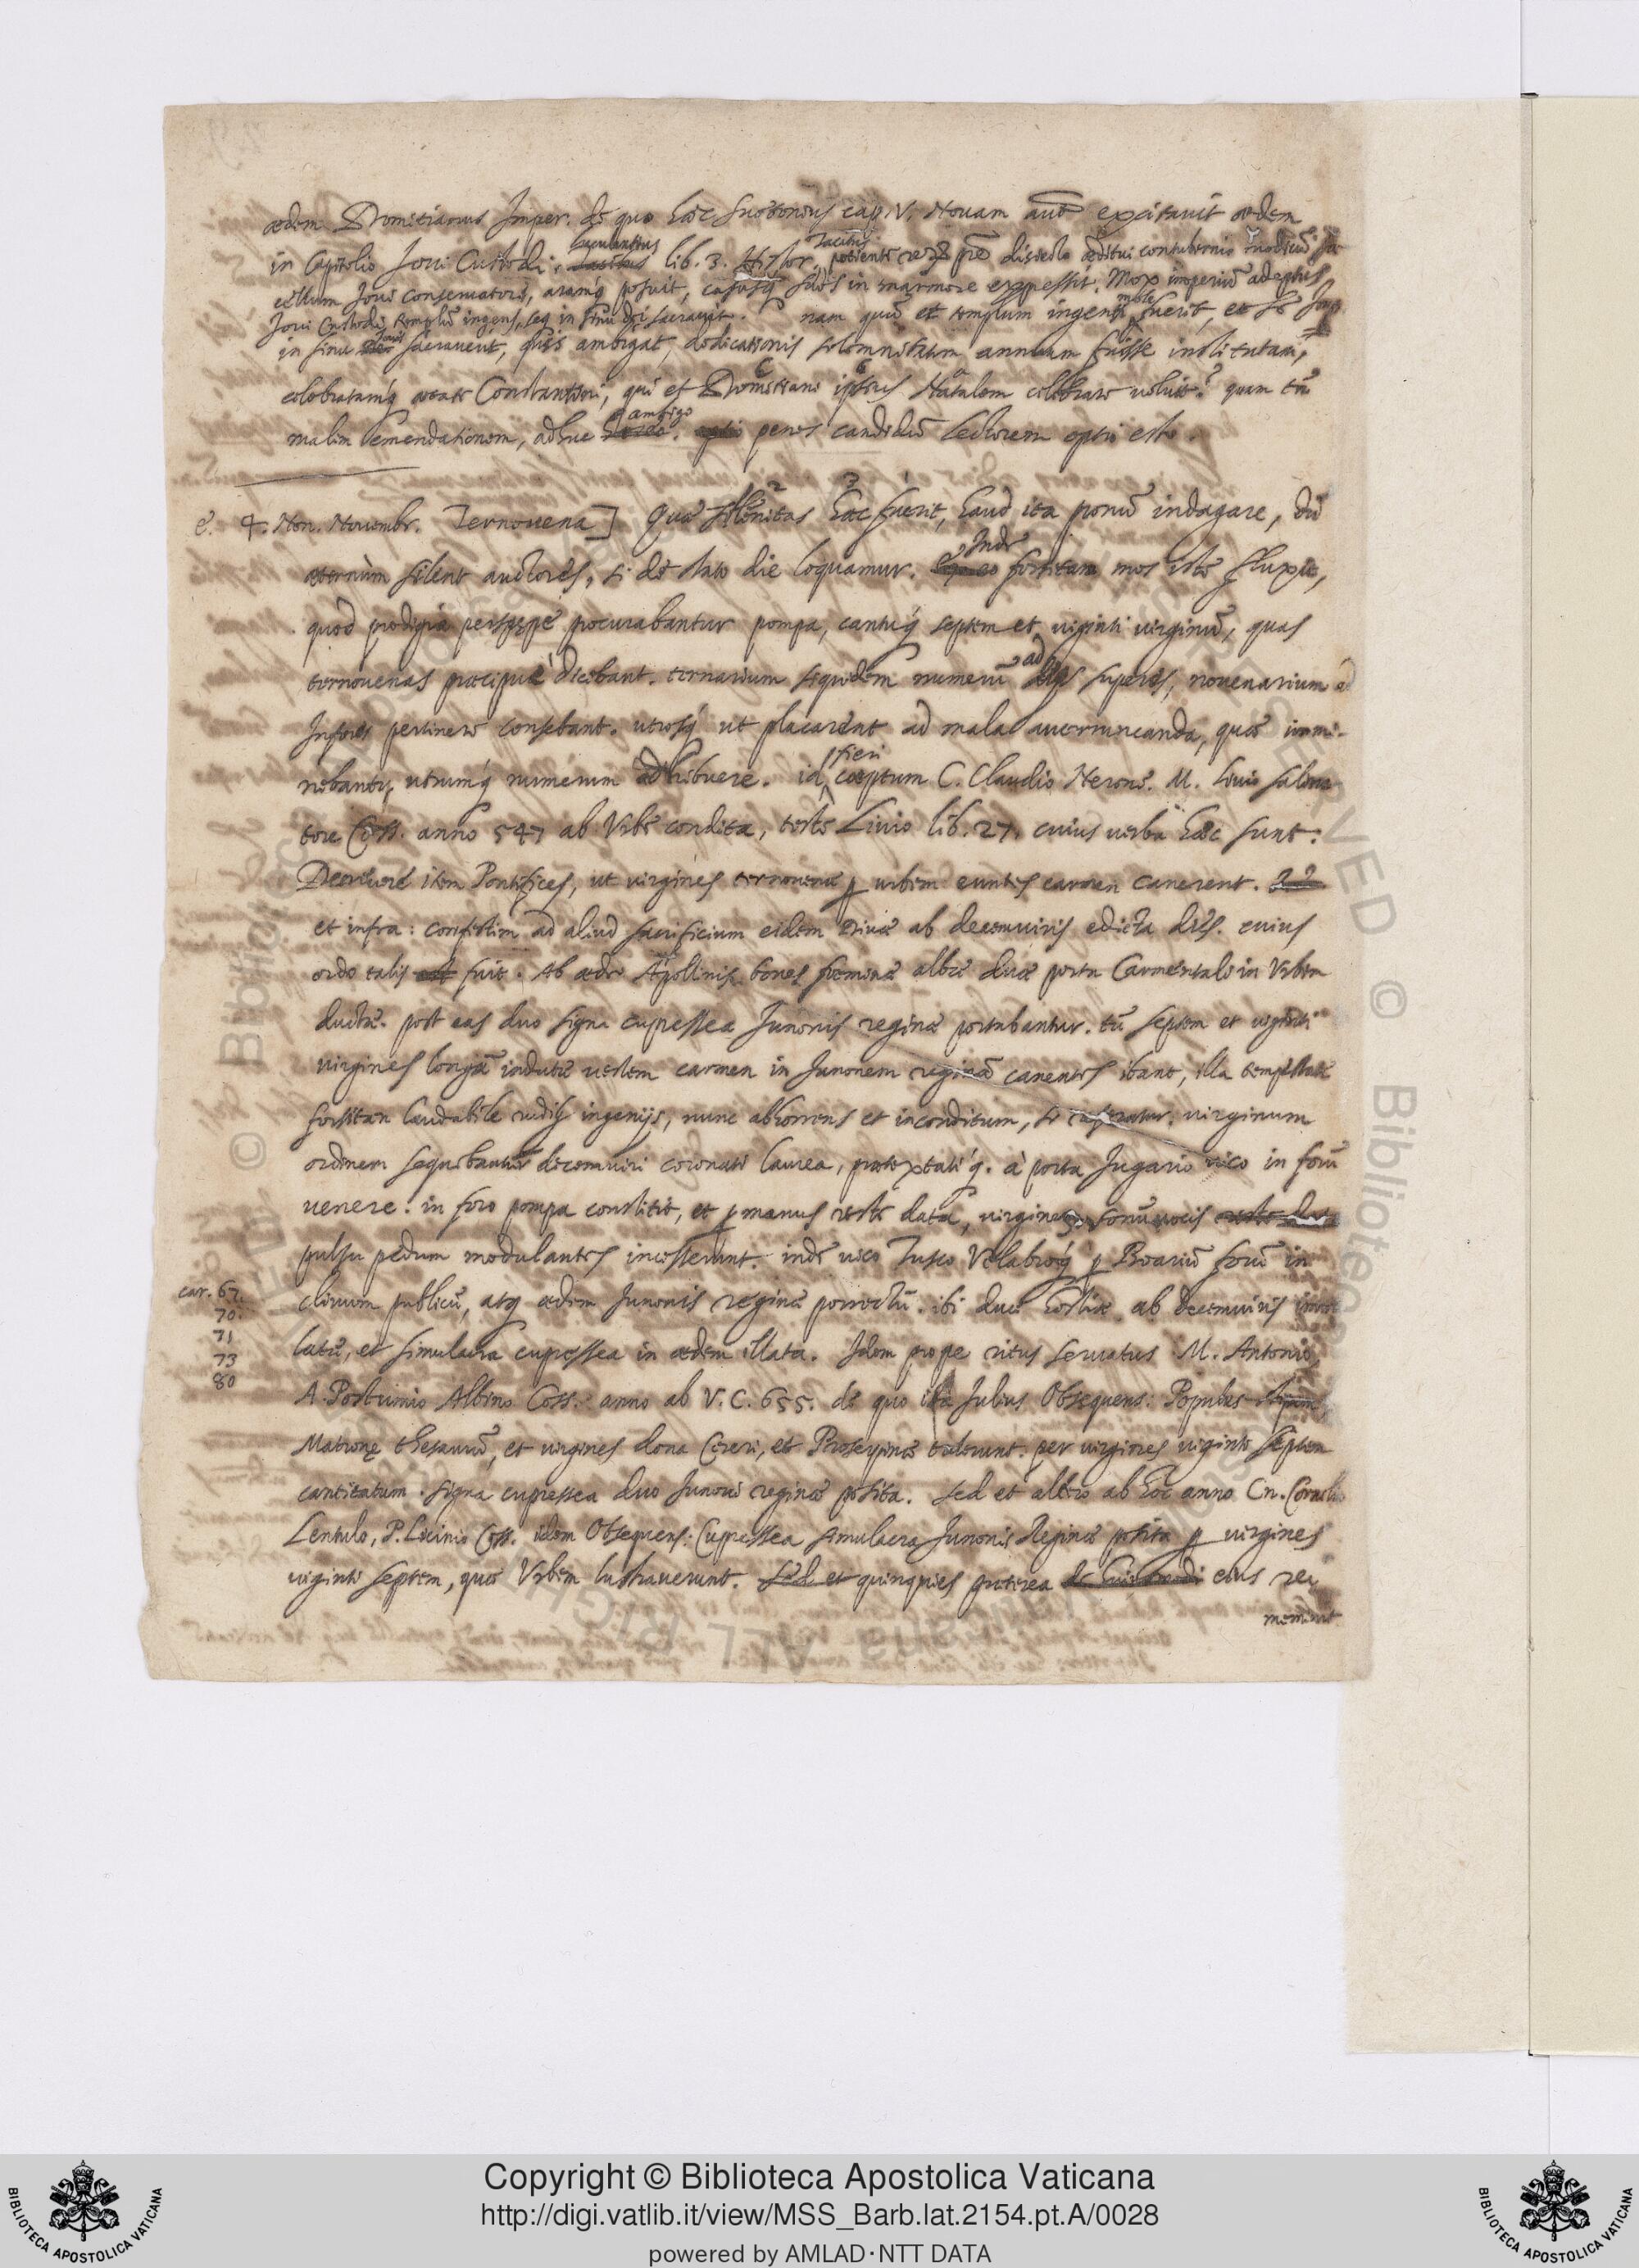 ædem Domitianus Imper. de quo hæc Suetonius cap. V. Novam autē excitavit ædem
in Capitolio Jovi Custodi. luculentius lib. 3. Histor. Tacitus potiente rerū pre disiecto æditui contubernio modicū sa-
cellum Jovi conservatori, aramq́ posuit, casusq́ suos in marmore expressit. Mox imperiū adeptus
Jovi Custodi templū ingens, seq́ in sinu dei sacravit. nam quū et templum ingenti mole fuerit, et se
in sinu Jovis sacraverit, quis ambigat, dedicationis solemnitatem annuam fuisse institutam,
celebratamq́ ætate Constantini, qui et Domitiani ipsius Natalem celebrare voluit? quam tn̄
malim emendationem, adhuc ambigo. penes candidū Lectorem optio esto.
e. 4. Non. Novembr. Ternovena] Quæ solēnitas hæc fuerit, haud ita pronū indagare, dū
æternùm silent auctores, si de stato die loquamur. Inde forsitan mos iste fluxit,
quod prodigia persæpe procurabantur pompa, cantuq́ septem et viginti virginū, quas
ternovenas præcipuè dicebant. ternarium siquidem numerū ad superos, novenarium ad
Inferos pertinere censebant. utrosq́ ut placarent ad mala averruncanda, quæ immi-
nebant, utrumq́ numerum adhibuere. id fieri cœptum C. Claudio Nerone. M. Livio Salina-
tore Coss. anno 547 ab Urbe condita, teste Livio lib. 27. cuius verba hæc sunt:
Decrevere item Pontifices, ut virgines ternovenæ p urbem euntes carmen canerent.
et infra: confestim ad aliud sacrificium eidem Divæ ab decemviris edicta dies. cuius
ordo talis fuit. Ab æde Apollinis boves fœminæ albæ duæ porta Carmentali in Urbem
ductæ. post eas duo signa cupressea Junonis reginæ portabantur. tū septem et viginti
virgines longā indutæ vestem carmen in Junonem reginā canentes ibant, illa tempestate
forsitan laudabile rudib; ingenijs, nunc abhorrens et inconditum, si referatur. virginum
ordinem sequebantur decemviri coronati laurea, prætextatiq́. à porta Jugario vico in forū
venere. in foro pompa constitit, et p manus reste data, virgines sonū vocis
pulsu pedum modulantes incesserunt. inde vico Tusco Velabroq́ p Boariū forū in
clivum publicū, atq́ ædem Junonis reginæ perrectū. ibi duæ hostiæ ab decemviris immo
car. 67.
70.
71
73
80
latæ, et simulacra cupressea in ædem illata. Idem prope ritus servatus M. Antonio,
A. Postumio Albino Coss. anno ab V. C. 655. de quo ita Julius Obsequens: Populus stipem,
Matronę thesaurū, et virgines dona Cereri, et Proserpinæ tulerunt. per virgines viginti septem
cantitatum. signa cupressea duo Junoni reginæ posita. sed et altero ab hoc anno Cn. Cornelio
Lentulo, P. Licinio Coss. idem Obsequens: Cupressea simulacra Junonis Reginæ posita p virgines
viginti septem, quæ Urbem lustraverunt. Sed et quinquies præterea eius rei
meminit
Copyright © Biblioteca Apostolica Vaticana
http://digi.vatlib.it/view/MSS_Barb.lat.2154.pt.A/0028
powered by AMLAD·NTT DATA
BIBLIOTECA APOSTOLICA VATICANA
BIBLIOTECA APOSTOLICA VATICANA